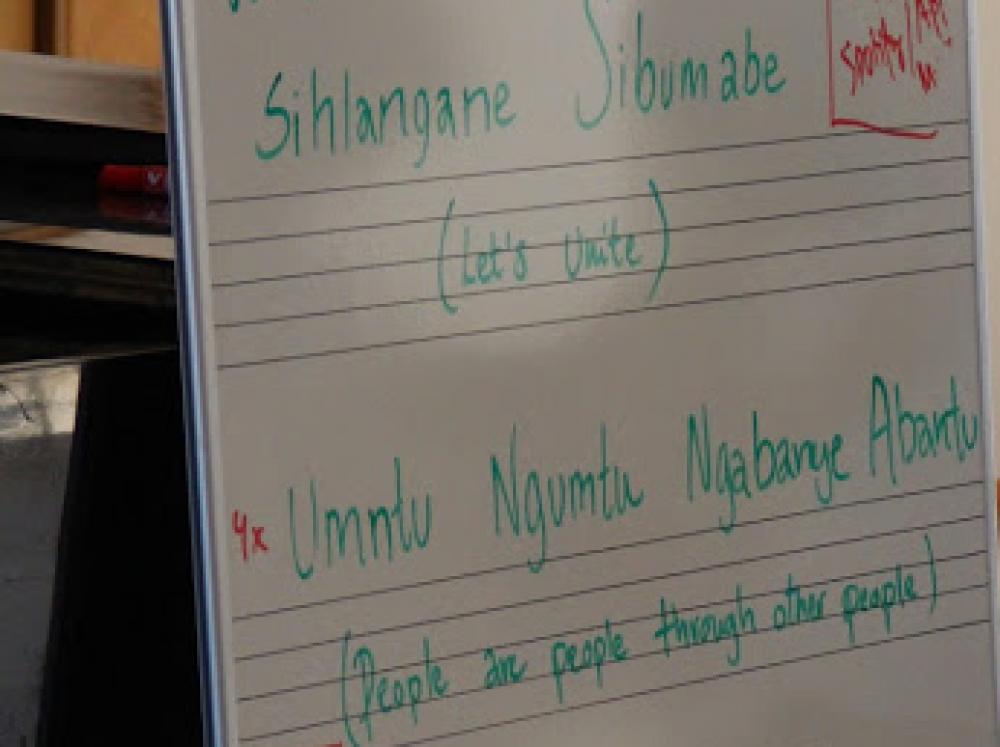 Sihlangane Sibumabe
(Let's Unite)
4x Umntu Ngumtu Ngabanye Abantu
(People are people through other people)